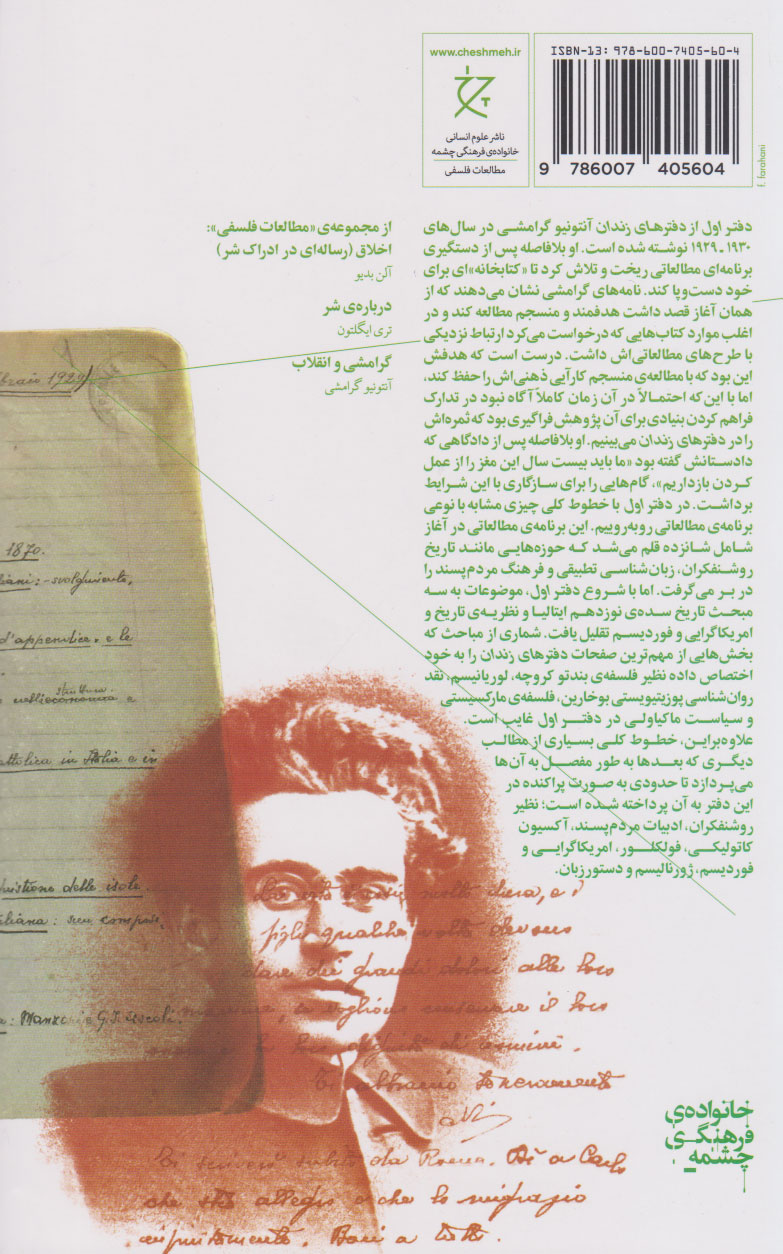 ISBN-13: 978-600-7405-60-4
9 786007 405604
f. farahani
www.cheshmeh.ir
ناشر علوم انسانی
خانواده‌ی فرهنگی چشمه
مطالعات فلسفی
دفتر اول از دفترهای زندان آنتونیو گرامشی در سال‌های
۱۹۳۰ ـ ۱۹۲۹ نوشته شده است. او بلافاصله پس از دستگیری
برنامه‌ای مطالعاتی ریخت و تلاش کرد تا «کتابخانه»ای برای
خود دست‌وپا کند. نامه‌های گرامشی نشان می‌دهند که از
همان آغاز قصد داشت هدفمند و منسجم مطالعه کند و در
اغلب موارد کتاب‌هایی که درخواست می‌کرد ارتباط نزدیکی
با طرح‌های مطالعاتی‌اش داشت. درست است که هدفش
این بود که با مطالعه‌ی منسجم کارآیی ذهنی‌اش را حفظ کند،
اما با این‌که احتمالاً در آن زمان کاملاً آگاه نبود در تدارک
فراهم کردن بنیادی برای آن پژوهش فراگیری بود که ثمره‌اش
را در دفترهای زندان می‌بینیم. او بلافاصله پس از دادگاهی که
دادستانش گفته بود «ما باید بیست سال این مغز را از عمل
کردن بازداریم»، گام‌هایی را برای سازگاری با این شرایط
برداشت. در دفتر اول با خطوط کلی چیزی مشابه با نوعی
برنامه‌ی مطالعاتی روبه‌روییم. این برنامه‌ی مطالعاتی در آغاز
شامل شانزده قلم می‌شد که حوزه‌هایی مانند تاریخ
روشنفکران، زبان‌شناسی تطبیقی و فرهنگ مردم‌پسند را
در بر می‌گرفت. اما با شروع دفتر اول، موضوعات به سه
مبحث تاریخ سده‌ی نوزدهم ایتالیا و نظریه‌ی تاریخ و
امریکاگرایی و فوردیسم تقلیل یافت. شماری از مباحث که
بخش‌هایی از مهم‌ترین صفحات دفترهای زندان را به خود
اختصاص داده نظیر فلسفه‌ی بندتو کروچه، لوریانیسم، نقد
روان‌شناسی پوزیتیویستی بوخارین، فلسفه‌ی مارکسیستی
و سیاست ماکیاولی در دفتر اول غایب است.
علاوه‌براین، خطوط کلی بسیاری از مطالب
دیگری که بعدها به طور مفصل به آن‌ها
می‌پردازد تا حدودی به صورت پراکنده در
این دفتر به آن پرداخته شده است؛ نظیر
روشنفکران، ادبیات مردم‌پسند، آکسیون
کاتولیکی، فولکلور، امریکاگرایی و
فوردیسم، ژورنالیسم و دستور زبان.
از مجموعه‌ی «مطالعات فلسفی»:
اخلاق (رساله‌ای در ادراک شر)
آلن بدیو
درباره‌ی شر
تری ایگلتون
گرامشی و انقلاب
آنتونیو گرامشی
1870.
d'appendice. e le
struttura
cattolica in Italia e in
quistione delle isole.
G. I. Ascoli.
figli qualche volta devono
dare dei grandi dolori alle loro
Ti abbraccio teneramente
Ti scriverò subito da Roma. Di a Carlo
che stia allegro e che lo ringrazio
infinitamente. Baci a tutti.
خانواده‌ی
فرهنگی
چشمه